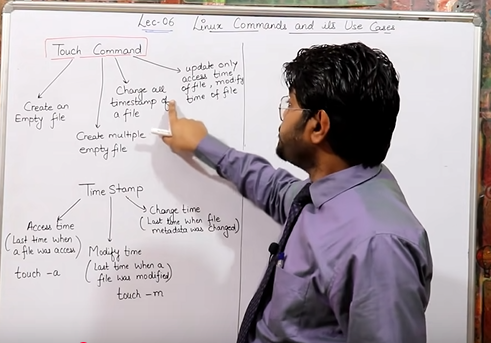 Lec-06 Linux Commands and its Use Cases
Touch Command
Create an
Empty file
Create multiple
empty file
Change all
timestamp of
a file
update only
access time
of file, modify
time of file
Time Stamp
Access time
(Last time when
a file was access)
touch -a
Modify time
(Last time when a
file was modified)
touch -m
Change time
(Last time when file
metadata was changed)